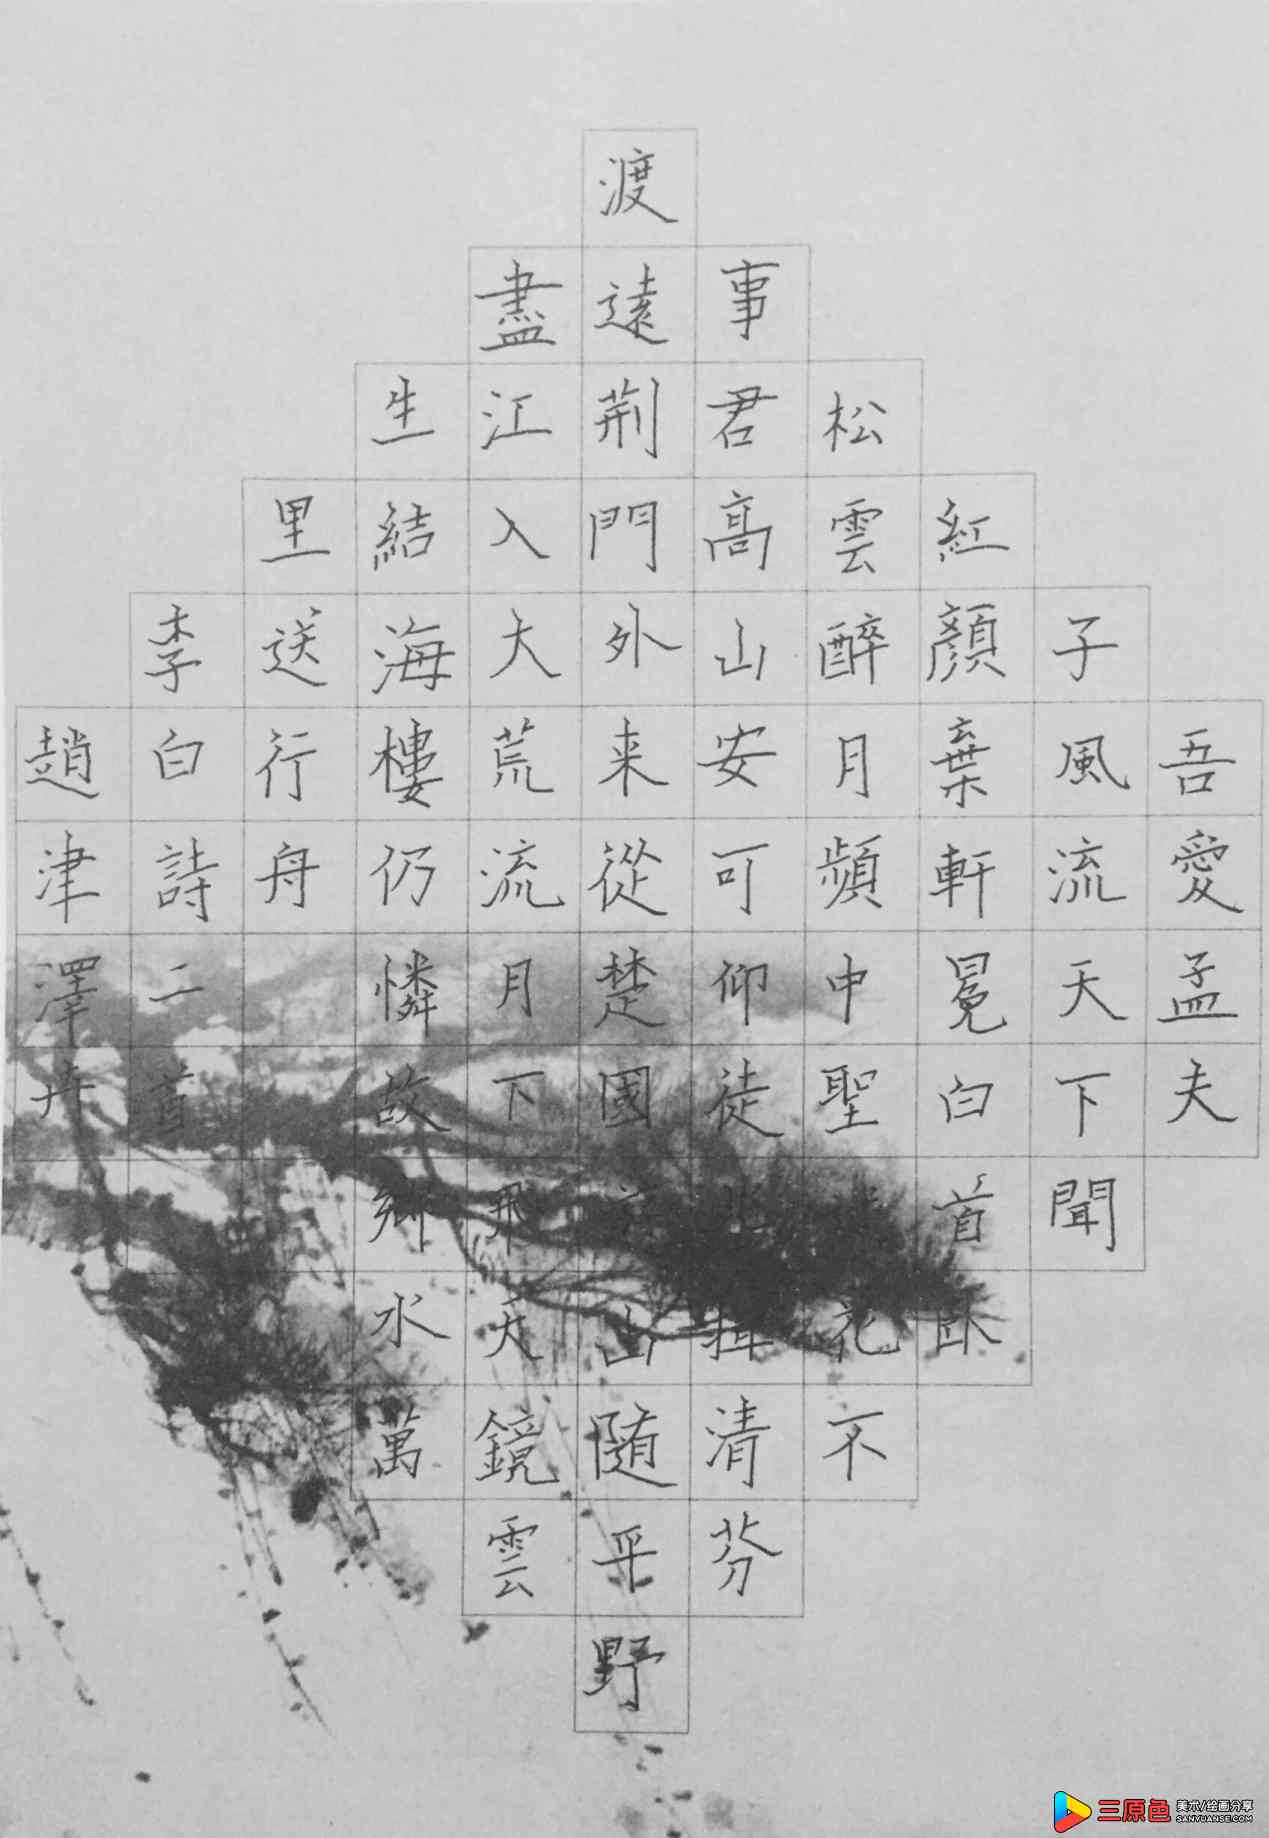 吾愛孟夫
子風流天下聞
紅顏棄軒冕白首臥
松雲醉月頻中聖花不
事君高山安可仰徒此揖清芬
渡遠荆門外来從楚國山随平野
盡江入大荒流月下飛天鏡雲
生結海樓仍憐故鄉水萬
里送行舟
李白詩二首
趙津澤卉
三原色
美术/绘画分享
SANYUANSE.COM